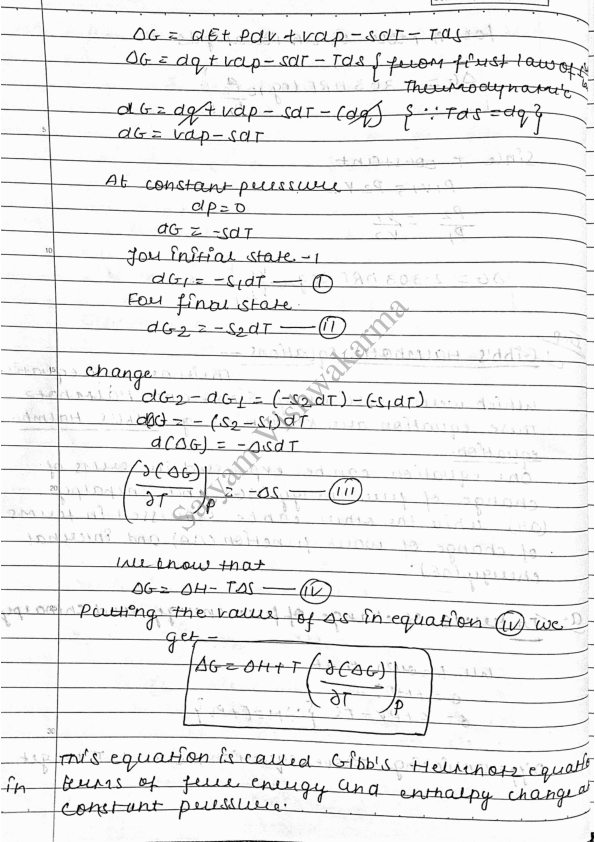 ΔG = dE + Pdv + vdp - sdT - Tds
ΔG = dq + vdp - sdT - Tds { from first law of the
Thermodynamic
dG = dq + vdp - sdT - (dq) { ∵ Tds = dq }
dG = vdp - sdT
At constant pressure
dp = 0
dG = -sdT
for initial state - 1
dG1 = -s1dT — (I)
For final state
dG2 = -s2dT — (II)
change
dG2 - dG1 = (-s2dT) - (-s1dT)
= -(s2 - s1)dT
d(ΔG) = -ΔsdT
(∂(ΔG)/∂T)P = -Δs — (III)
We know that
ΔG = ΔH - TΔs — (IV)
Putting the value of Δs in equation (IV) we
get -
ΔG = ΔH + T (∂(ΔG)/∂T)P
This equation is called Gibb's Helmhotz equati
in terms of free energy and enthalpy change a
constant pressure.
Satyam Vishwakarma